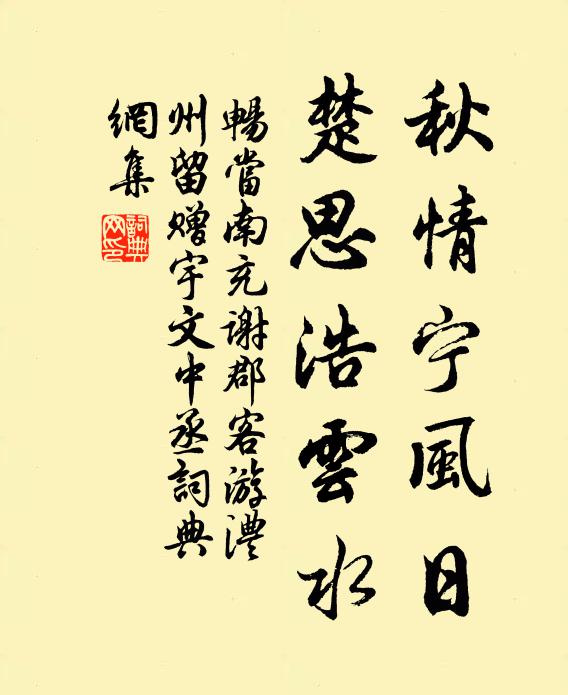 秋情宁風日
楚思浩雲水
暢當南充謝郡客游澧
州留赠宇文中丞詞典
網集
詞典
网印